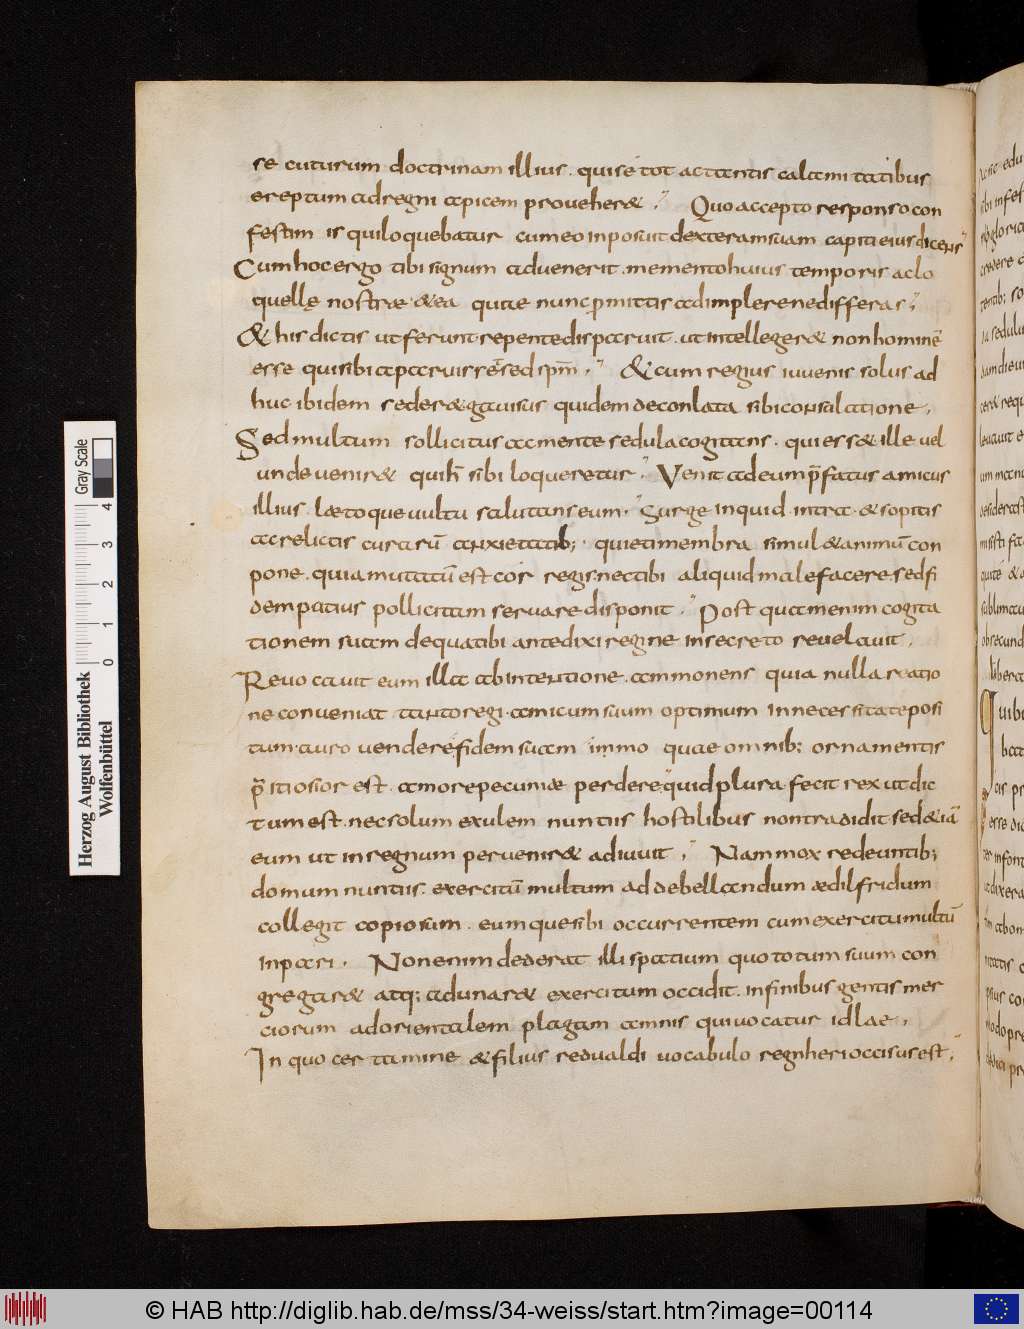 se cuturum doctrinam illius . qui se tot actantis calamitatibus
ereptum ad regni apicem proveher& . Quo accepto responso con
festim is qui loquebatur cum eo inposuit dexteram suam capiti eius dicens
Cum hoc ergo tibi signum advenerit . memento huius temporis ac lo
quellę nostrae . & ea quae nunc ꝓmittis adimplere ne differas .
& his dictis ut ferunt repente disparuit . ut intelleger& non hominē
esse qui sibi apparuiss& sed spm̄ . & cum regius iuvenis solus ad
huc ibidem seder& gavisus quidem de conlata sibi consalatione .
Sed multum sollicitus ac mente sedula cogitans . qui ess& ille vel
unde venir& qui h̄ sibi loqueretur . Venit ad eum p̄fatus amicus
illius . laetoque vultu salutans eum . Surge inquid . intra . & sopitis
ac relictis curarū anxietatib; . quieti membra simul & animū con
pone . quia mutatū est cor regis . nec tibi aliquid male facere sed fi
dem patius pollicitam servare disponit . Post quam enim cogita
tionem suam de qua tibi ante dixi regine in secreto revelavit .
Revocavit eum illa ab intentione . ammonens quia nulla ratio
ne conveniat tanto regi . amicum suum optimum in necessitate posi
tum . auro vendere fidem suam immo quae omnib; ornamentis
p̄itiosior est . amore pecuniae perdere quid plura fecit rex ut dic
tum est . nec solum exulem nuntiis hostilibus non tradidit sed & iā
eum ut in regnum pervenir& adiuvit . Nam mox redeuntib;
domum nuntiis . exercitū multum ad debellandum aedilfridum
collegit copiosum . eumque sibi occurrentem cum exercitu multū
inpari . Non enim dederat illi spatium quo totum suum con
gregar& atq; adunar& exercitum occidit . in finibus gentis mer
ciorum ad orientalem plagam amnis qui vocatur idlae .
In quo certamine & filius redualdi vocabulo regnheri occisus est .
Herzog August Bibliothek
Wolfenbüttel
0 1 2 3 4
Gray Scale
© HAB http://diglib.hab.de/mss/34-weiss/start.htm?image=00114